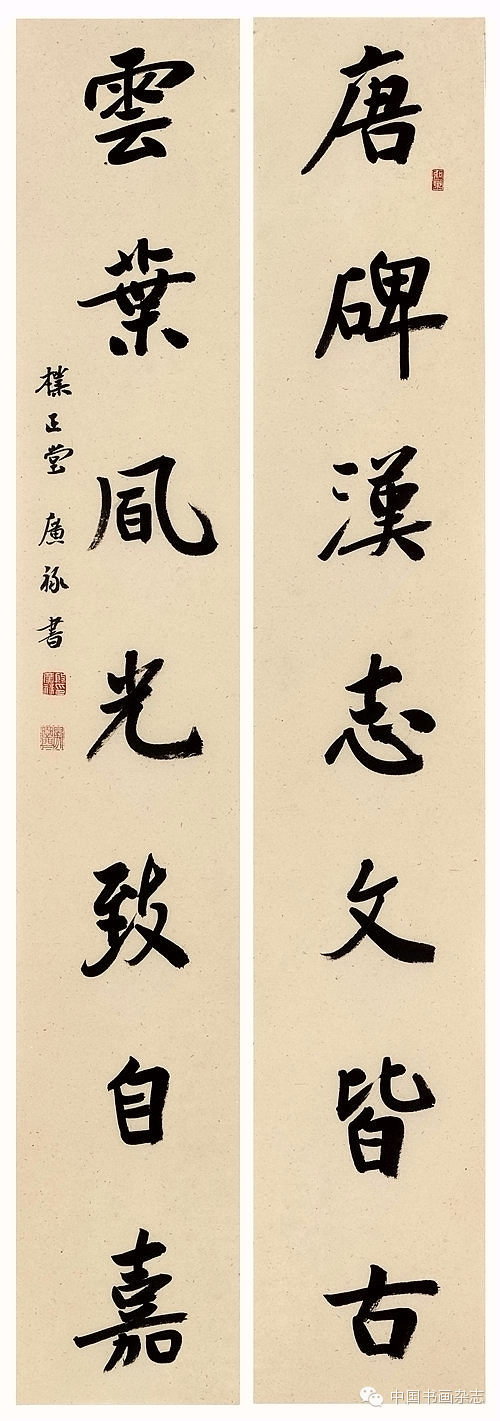 唐碑漢志文皆古
雲葉風光致自嘉
樸正堂 廣祿書
中国书画杂志